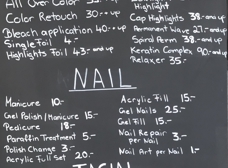 All Over Color 35.- 
Color Retouch 30.- & up
Bleach Application 40.- & up
Single Foil 4.-
Highlights Foil 43.- and up
Highlight
Cap Highlights 38.- and up
Permanent Wave 27.- and up
Spiral Perm 38.- and up
Keratin Complex 90.- and up
Relaxer 35.-
NAIL
Manicure 10.-
Gel Polish/Manicure 15.-
Pedicure 18.-
Paraffin Treatment 5.-
Polish Change 3.-
Acrylic Full Set 20.-
Acrylic Fill 15.-
Gel Nails 25.-
Gel Fill 15.-
Nail Repair 3.-
per Nail
Nail Art per Nail 1.-
FACIAL